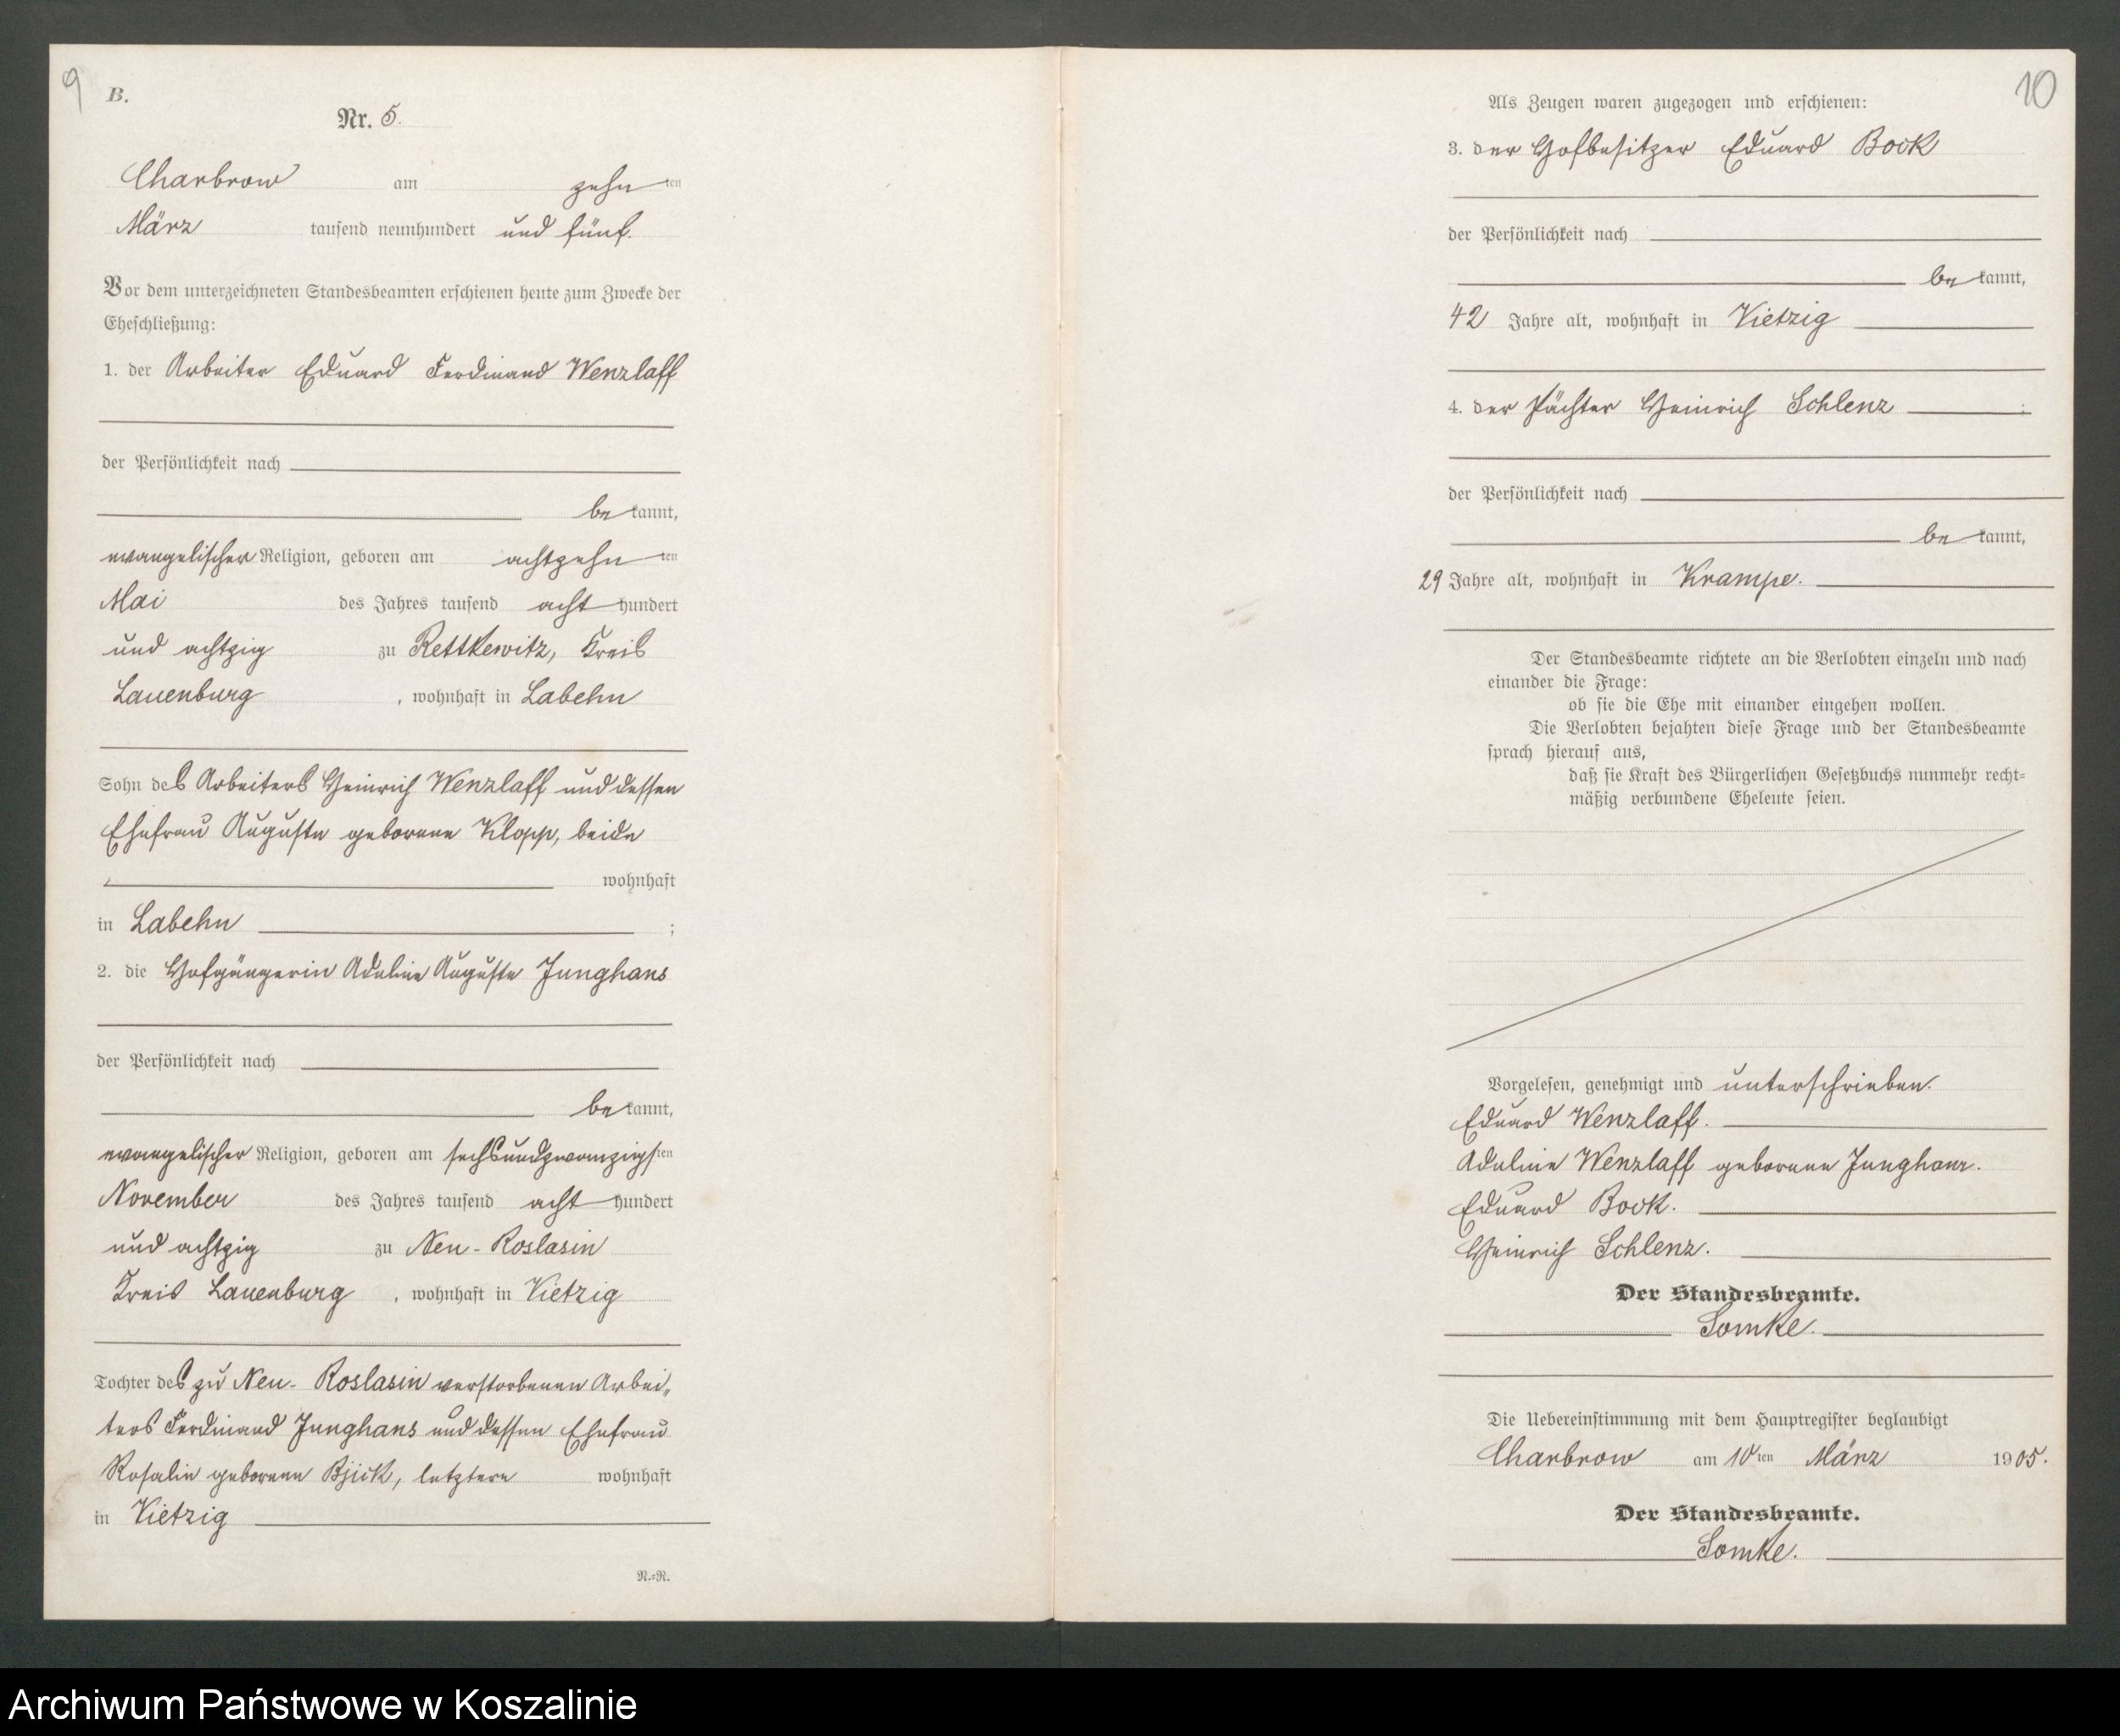 9
B.
Nr. 5.
Charbrow am zehnten
März tausend neunhundert und fünf.
Vor dem unterzeichneten Standesbeamten erschienen heute zum Zwecke der
Eheschließung:
1. der Arbeiter Eduard Ferdinand Wenzlaff
der Persönlichkeit nach
bekannt,
evangelischer Religion, geboren am achtzehnten
Mai des Jahres tausend achthundert
und achtzig zu Rettkewitz, Kreis
Lauenburg, wohnhaft in Labehn
Sohn des Arbeiters Heinrich Wenzlaff und dessen
Ehefrau Auguste geborene Klopp, beide
wohnhaft
in Labehn ;
2. die Hofgängerin Adeline Auguste Junghans
der Persönlichkeit nach
bekannt,
evangelischer Religion, geboren am sechsundzwanzigsten
November des Jahres tausend achthundert
und achtzig zu Neu-Roslasin
Kreis Lauenburg, wohnhaft in Vietzig
Tochter des zu Neu-Roslasin verstorbenen Arbei„
ters Ferdinand Junghans und dessen Ehefrau
Rosalie geborene letztere wohnhaft
in Vietzig
N.=N.
10
Als Zeugen waren zugezogen und erschienen:
3. der Hofbesitzer Eduard Bock
der Persönlichkeit nach
bekannt,
42 Jahre alt, wohnhaft in Vietzig
4. der Pächter Heinrich Schlenz ;
der Persönlichkeit nach
bekannt,
29 Jahre alt, wohnhaft in Krampe.
Der Standesbeamte richtete an die Verlobten einzeln und nach
einander die Frage:
ob sie die Ehe mit einander eingehen wollen.
Die Verlobten bejahten diese Frage und der Standesbeamte
sprach hierauf aus,
daß sie Kraft des Bürgerlichen Gesetzbuchs nunmehr recht=
mäßig verbundene Eheleute seien.
Vorgelesen, genehmigt und unterschrieben.
Eduard Wenzlaff.
Adeline Wenzlaff geborene Junghans.
Eduard Bock.
Heinrich Schlenz.
Der Standesbeamte.
Somke.
Die Uebereinstimmung mit dem Hauptregister beglaubigt
Charbrow am 10ten März 1905.
Der Standesbeamte.
Somke.
Archiwum Państwowe w Koszalinie